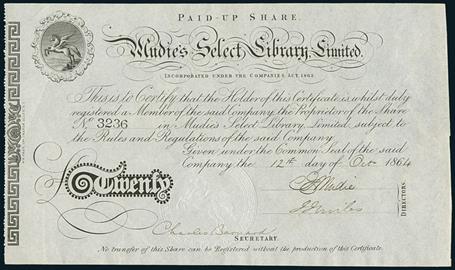 PAID-UP SHARE.
Mudie's Select Library, Limited.
INCORPORATED UNDER THE COMPANIES ACT, 1862.
This is to Certify that the Holder of this Certificate is whilst duly
registered a Member of the said Company the Proprietor of the Share
No. 3236 in Mudie's Select Library, Limited, subject to
the Rules and Regulations of the said Company
Given under the Common Seal of the said
Company the 12th day of Oct 1864
Twenty
C E Mudie
Miles
DIRECTORS
Charles Barnard
SECRETARY.
No transfer of this Share can be Registered without the production of this Certificate.